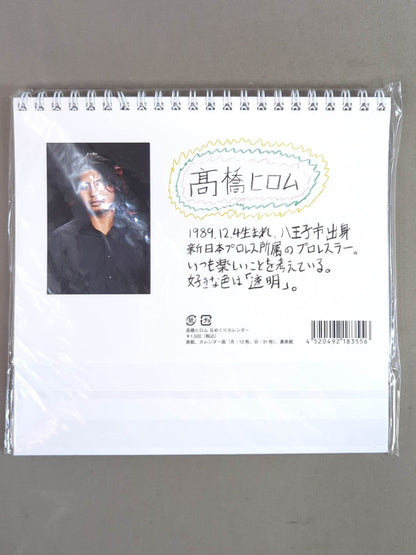 髙橋ヒロム
1989.12.4生まれ、八王子市出身
新日本プロレス所属のプロレスラー。
いつも楽しいことを考えている。
好きな色は「透明」。
髙橋ヒロム 日めくりカレンダー
¥1,500(税込)
表紙、カレンダー面(月:12枚、日:31枚)、裏表紙
4 520492 183556